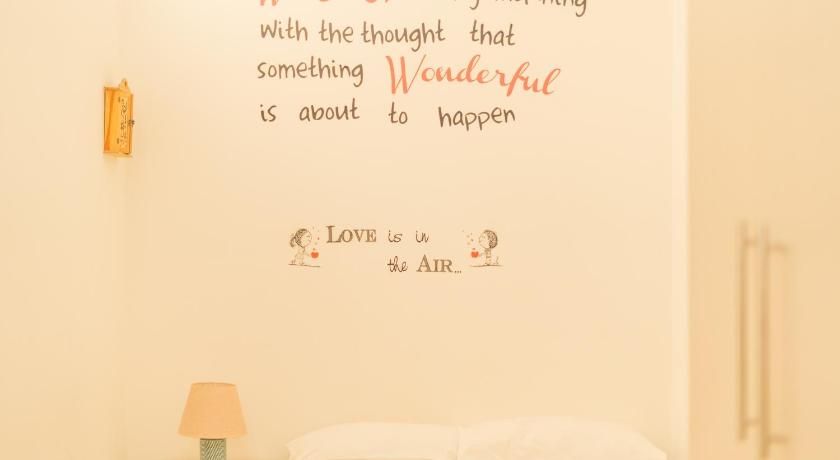 With the thought that
something Wonderful
is about to happen
LOVE is in
the AIR...